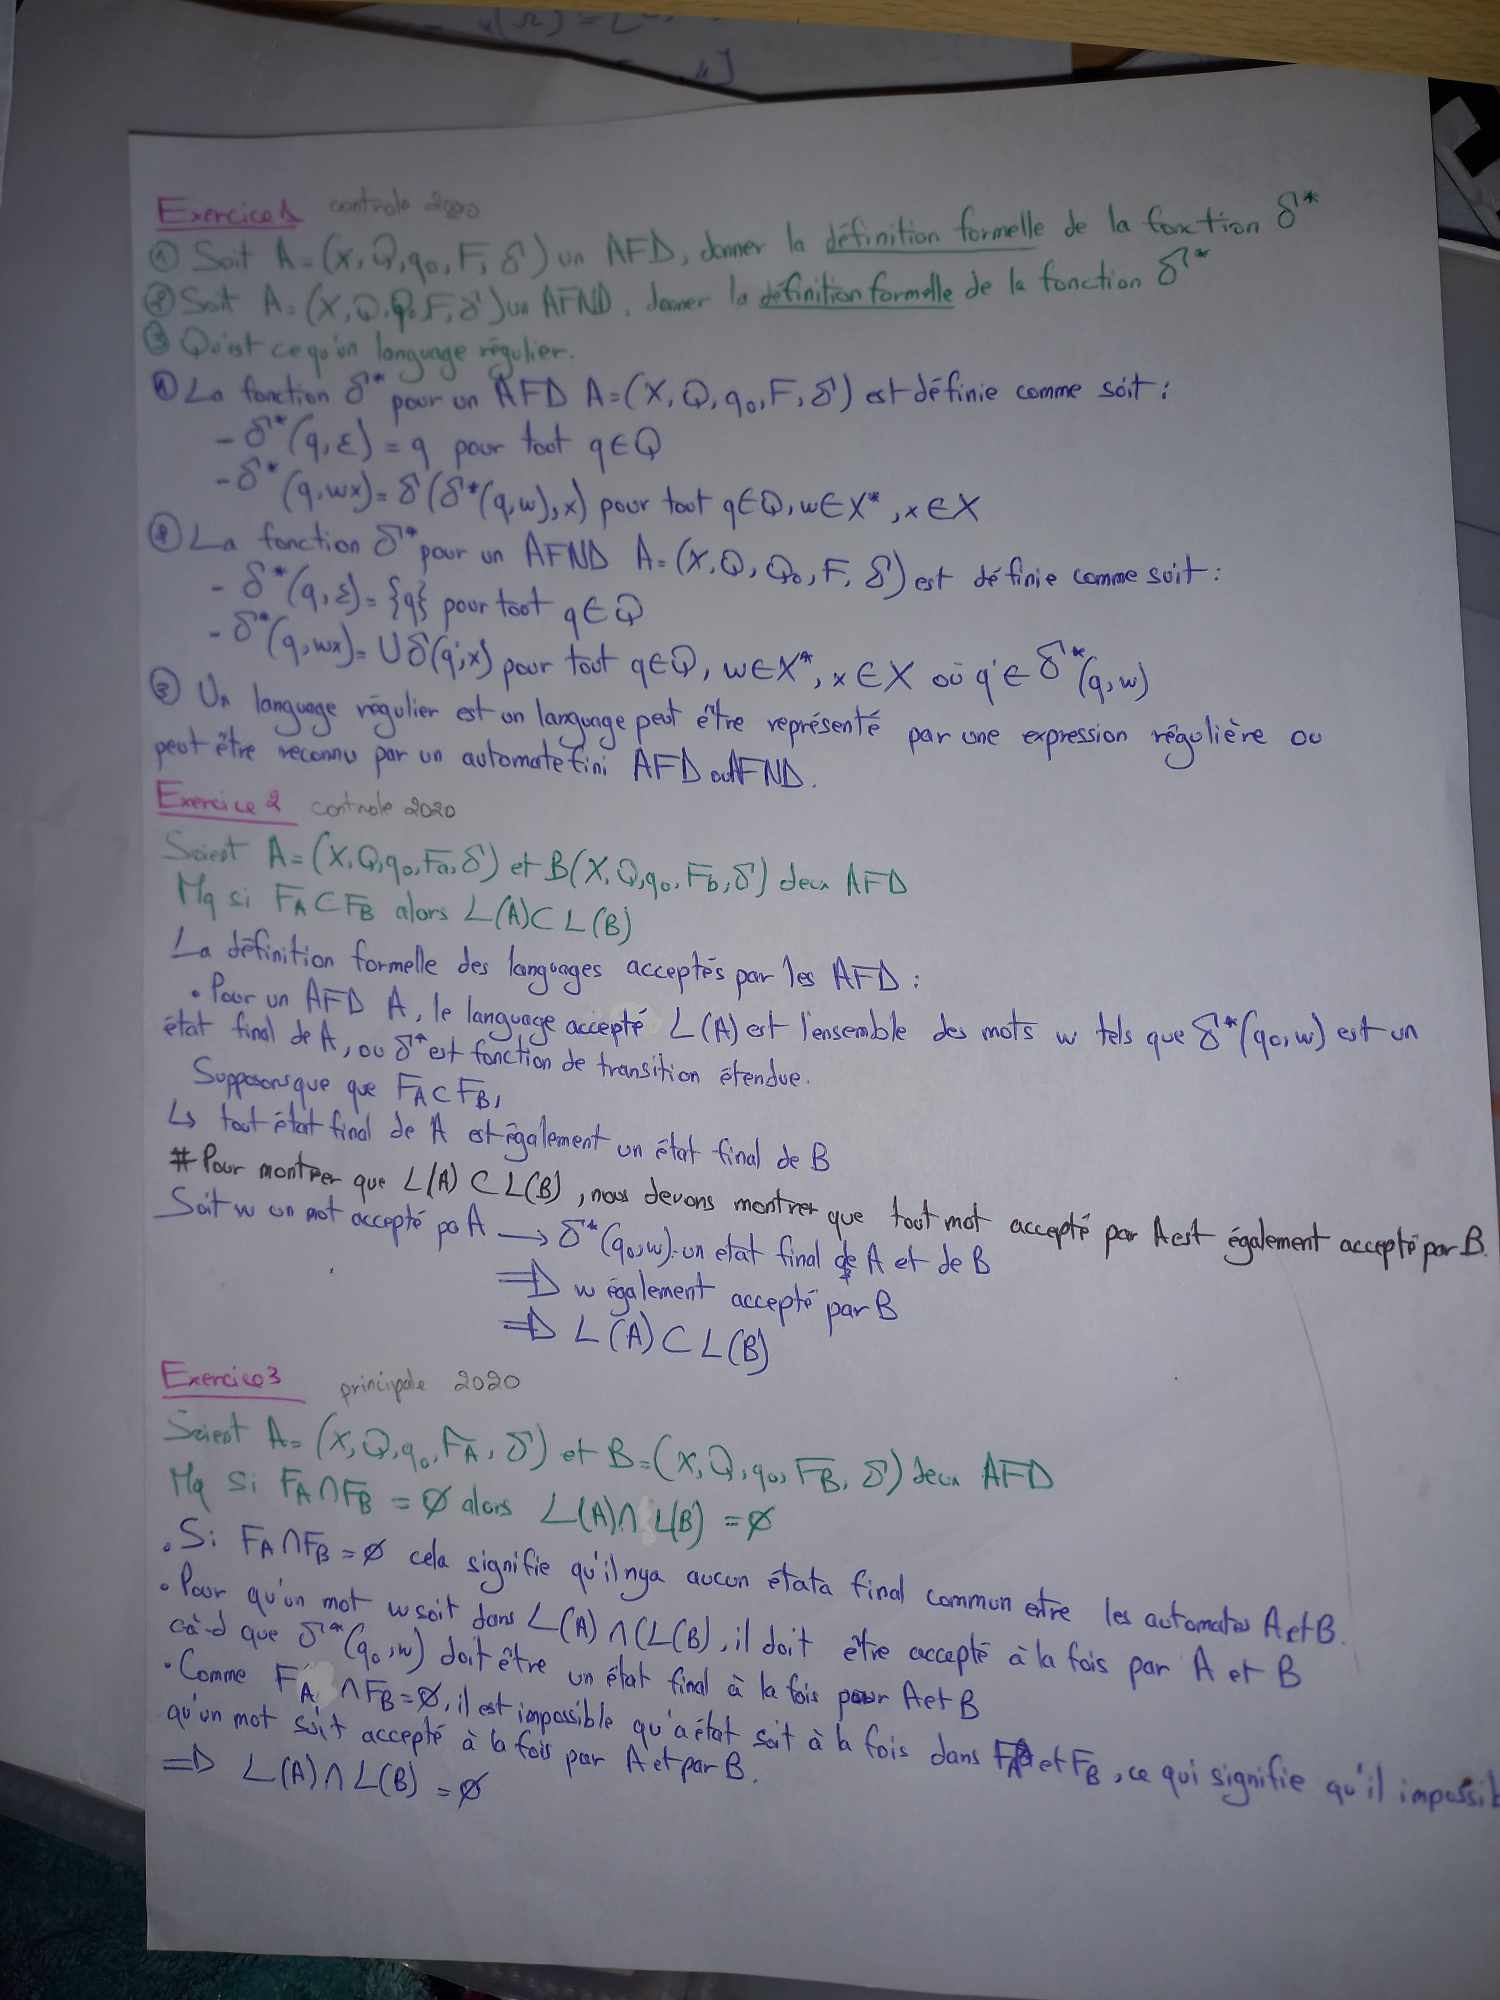 Exercice 1 controle 2020
① Soit A=(X,Q,q₀,F,δ) un AFD, donner la définition formelle de la fonction δ*
② Soit A=(X,Q,Q₀,F,δ) un AFND, donner la définition formelle de la fonction δ*
③ Qu'est ce qu'un language régulier.
① La fonction δ* pour un AFD A=(X,Q,q₀,F,δ) est définie comme soit :
- δ*(q,ε) = q pour tout q∈Q
- δ*(q,wx) = δ(δ*(q,w),x) pour tout q∈Q, w∈X*, x∈X
② La fonction δ* pour un AFND A=(X,Q,Q₀,F,δ) est définie comme suit :
- δ*(q,ε) = {q} pour tout q∈Q
- δ*(q,wx) = ∪δ(q',x) pour tout q∈Q, w∈X*, x∈X où q'∈ δ*(q,w)
③ Un language régulier est un language peut être représenté par une expression régulière ou
peut être reconnu par un automate fini AFD ou AFND.
Exercice 2 controle 2020
Soient A=(X,Q,q₀,Fa,δ) et B(X,Q,q₀,Fb,δ) deux AFD
Mq si F_A⊂F_B alors L(A)⊂L(B)
La définition formelle des languages acceptés par les AFD :
• Pour un AFD A, le language accepté L(A) est l'ensemble des mots w tels que δ*(q₀,w) est un
état final de A, ou δ* est fonction de transition étendue.
Supposons que que F_A⊂F_B,
↳ tout état final de A est également un état final de B
# Pour montrer que L(A) ⊂ L(B), nous devons montrer que tout mot accepté par A est également accepté par B.
Soit w un mot accepté pa A → δ*(q₀,w) un etat final de A et de B
⇒ w également accepté par B
⇒ L(A) ⊂ L(B)
Exercice 3 principale 2020
Soient A=(X,Q,q₀,F_A,δ) et B=(X,Q,q₀,F_B,δ) deux AFD
Mq Si F_A∩F_B = ∅ alors L(A)∩L(B) = ∅
• Si F_A∩F_B = ∅ cela signifie qu'il nya aucun étata final commun entre les automates A et B.
• Pour qu'un mot w soit dans L(A)∩(L(B), il doit être accepté à la fois par A et B
cà-d que δ*(q₀,w) doit être un état final à la fois pour A et B
• Comme F_A ∩F_B=∅, il est impossible qu'a état soit à la fois dans F_A et F_B, ce qui signifie qu'il impossib
qu'un mot soit accepté à la fois par A et par B.
⇒ L(A)∩L(B) = ∅